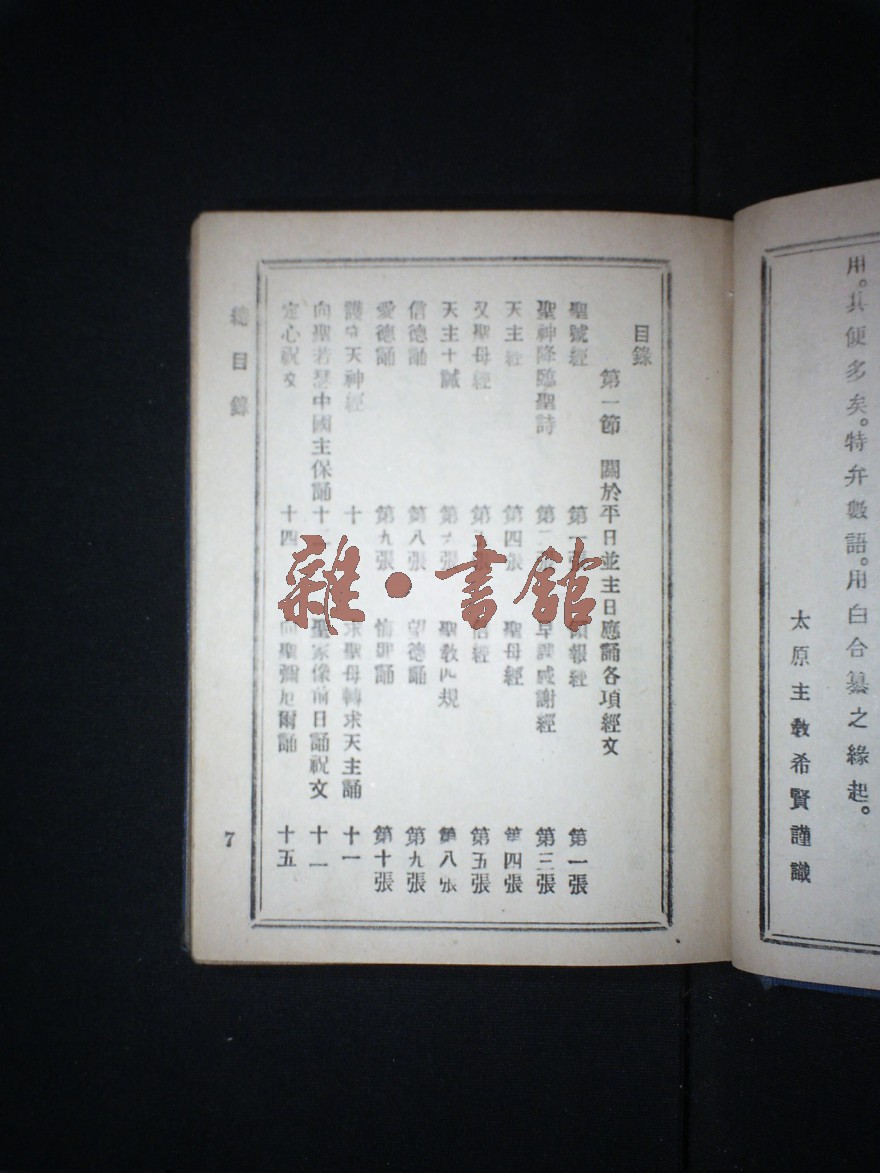 用。其便多矣。特弁數語。用白合纂之緣起。
太原主教希賢謹識
目錄
第一節 關於平日並主日應誦各項經文
聖號經 第一張 報經 第一張
聖神降臨聖詩 第二張 早課感謝經 第三張
天主經 第四張 聖母經 第四張
又聖母經 信經 第五張
天主十誡 聖教四規 第八張
信德誦 第八張 望德誦 第九張
愛德誦 第九張 悔罪誦 第十張
護守天神經 十 求聖母轉求天主誦 十一
向聖若瑟中國主保誦 十二 聖家像前日誦祝文 十一
定心祝文 十四 向聖彌厄爾誦 十五
總目錄
7
雜·書館